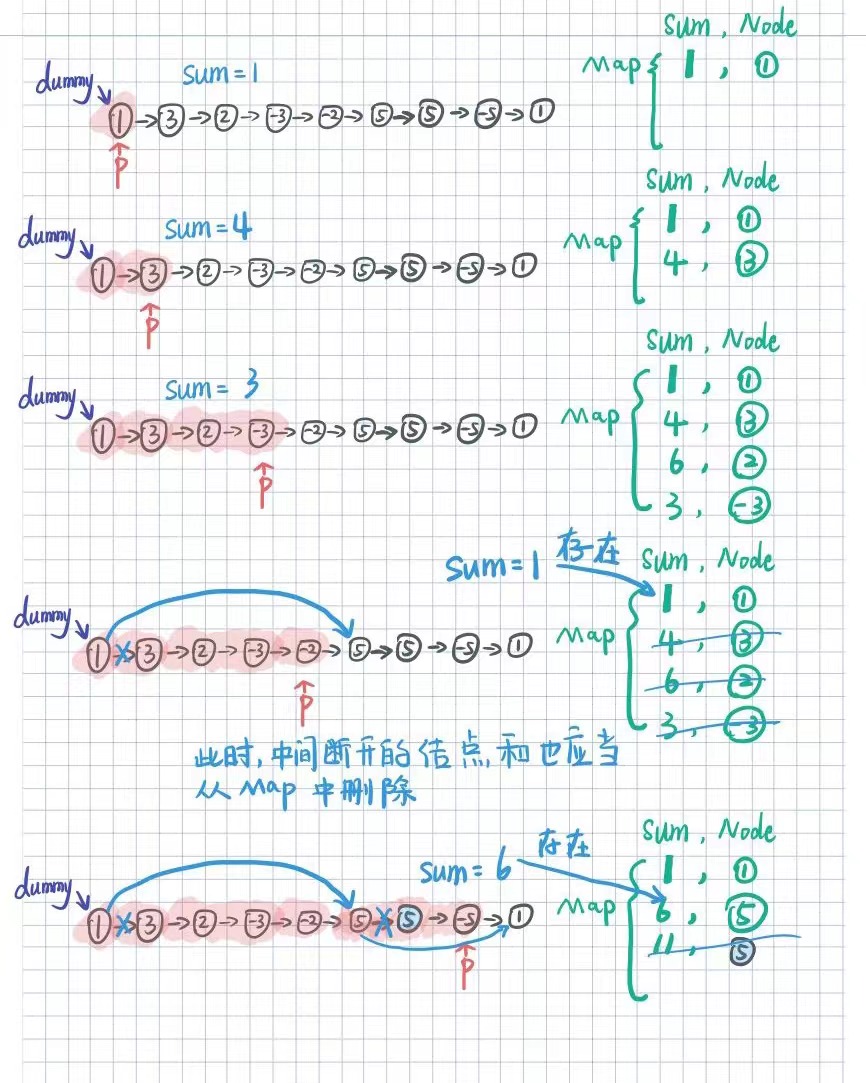 Sum, Node
dummy sum=1 Map { 1, ①
① → ③ → ② → -3 → -2 → ⑤ → ⑤ → -5 → ①
P
Sum, Node
dummy sum=4 Map { 1, ①
4, ③
① → ③ → ② → -3 → -2 → ⑤ → ⑤ → -5 → ①
P
Sum, Node
dummy sum=3 Map { 1, ①
4, ③
① → ③ → ② → -3 → -2 → ⑤ → ⑤ → -5 → ①
6, ②
3, -3
P
sum=1 存在 Sum, Node
dummy Map { 1, ①
4, ③
① × ③ → ② → -3 → -2 → ⑤ → ⑤ → -5 → ①
6, ②
3, -3
P
此时,中间断开的结点,和也应当
从 Map 中删除
Sum, Node
dummy sum=6 存在 Map { 1, ①
6, ⑤
① × ③ → ② → -3 → -2 → ⑤ × ⑤ → -5 → ①
11, ⑤
P